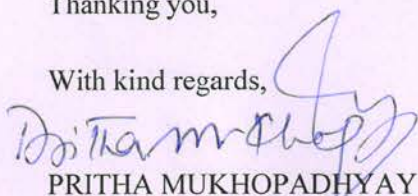 Thanking you,
With kind regards,
Pritha Mukhop
PRITHA MUKHOPADHYAY